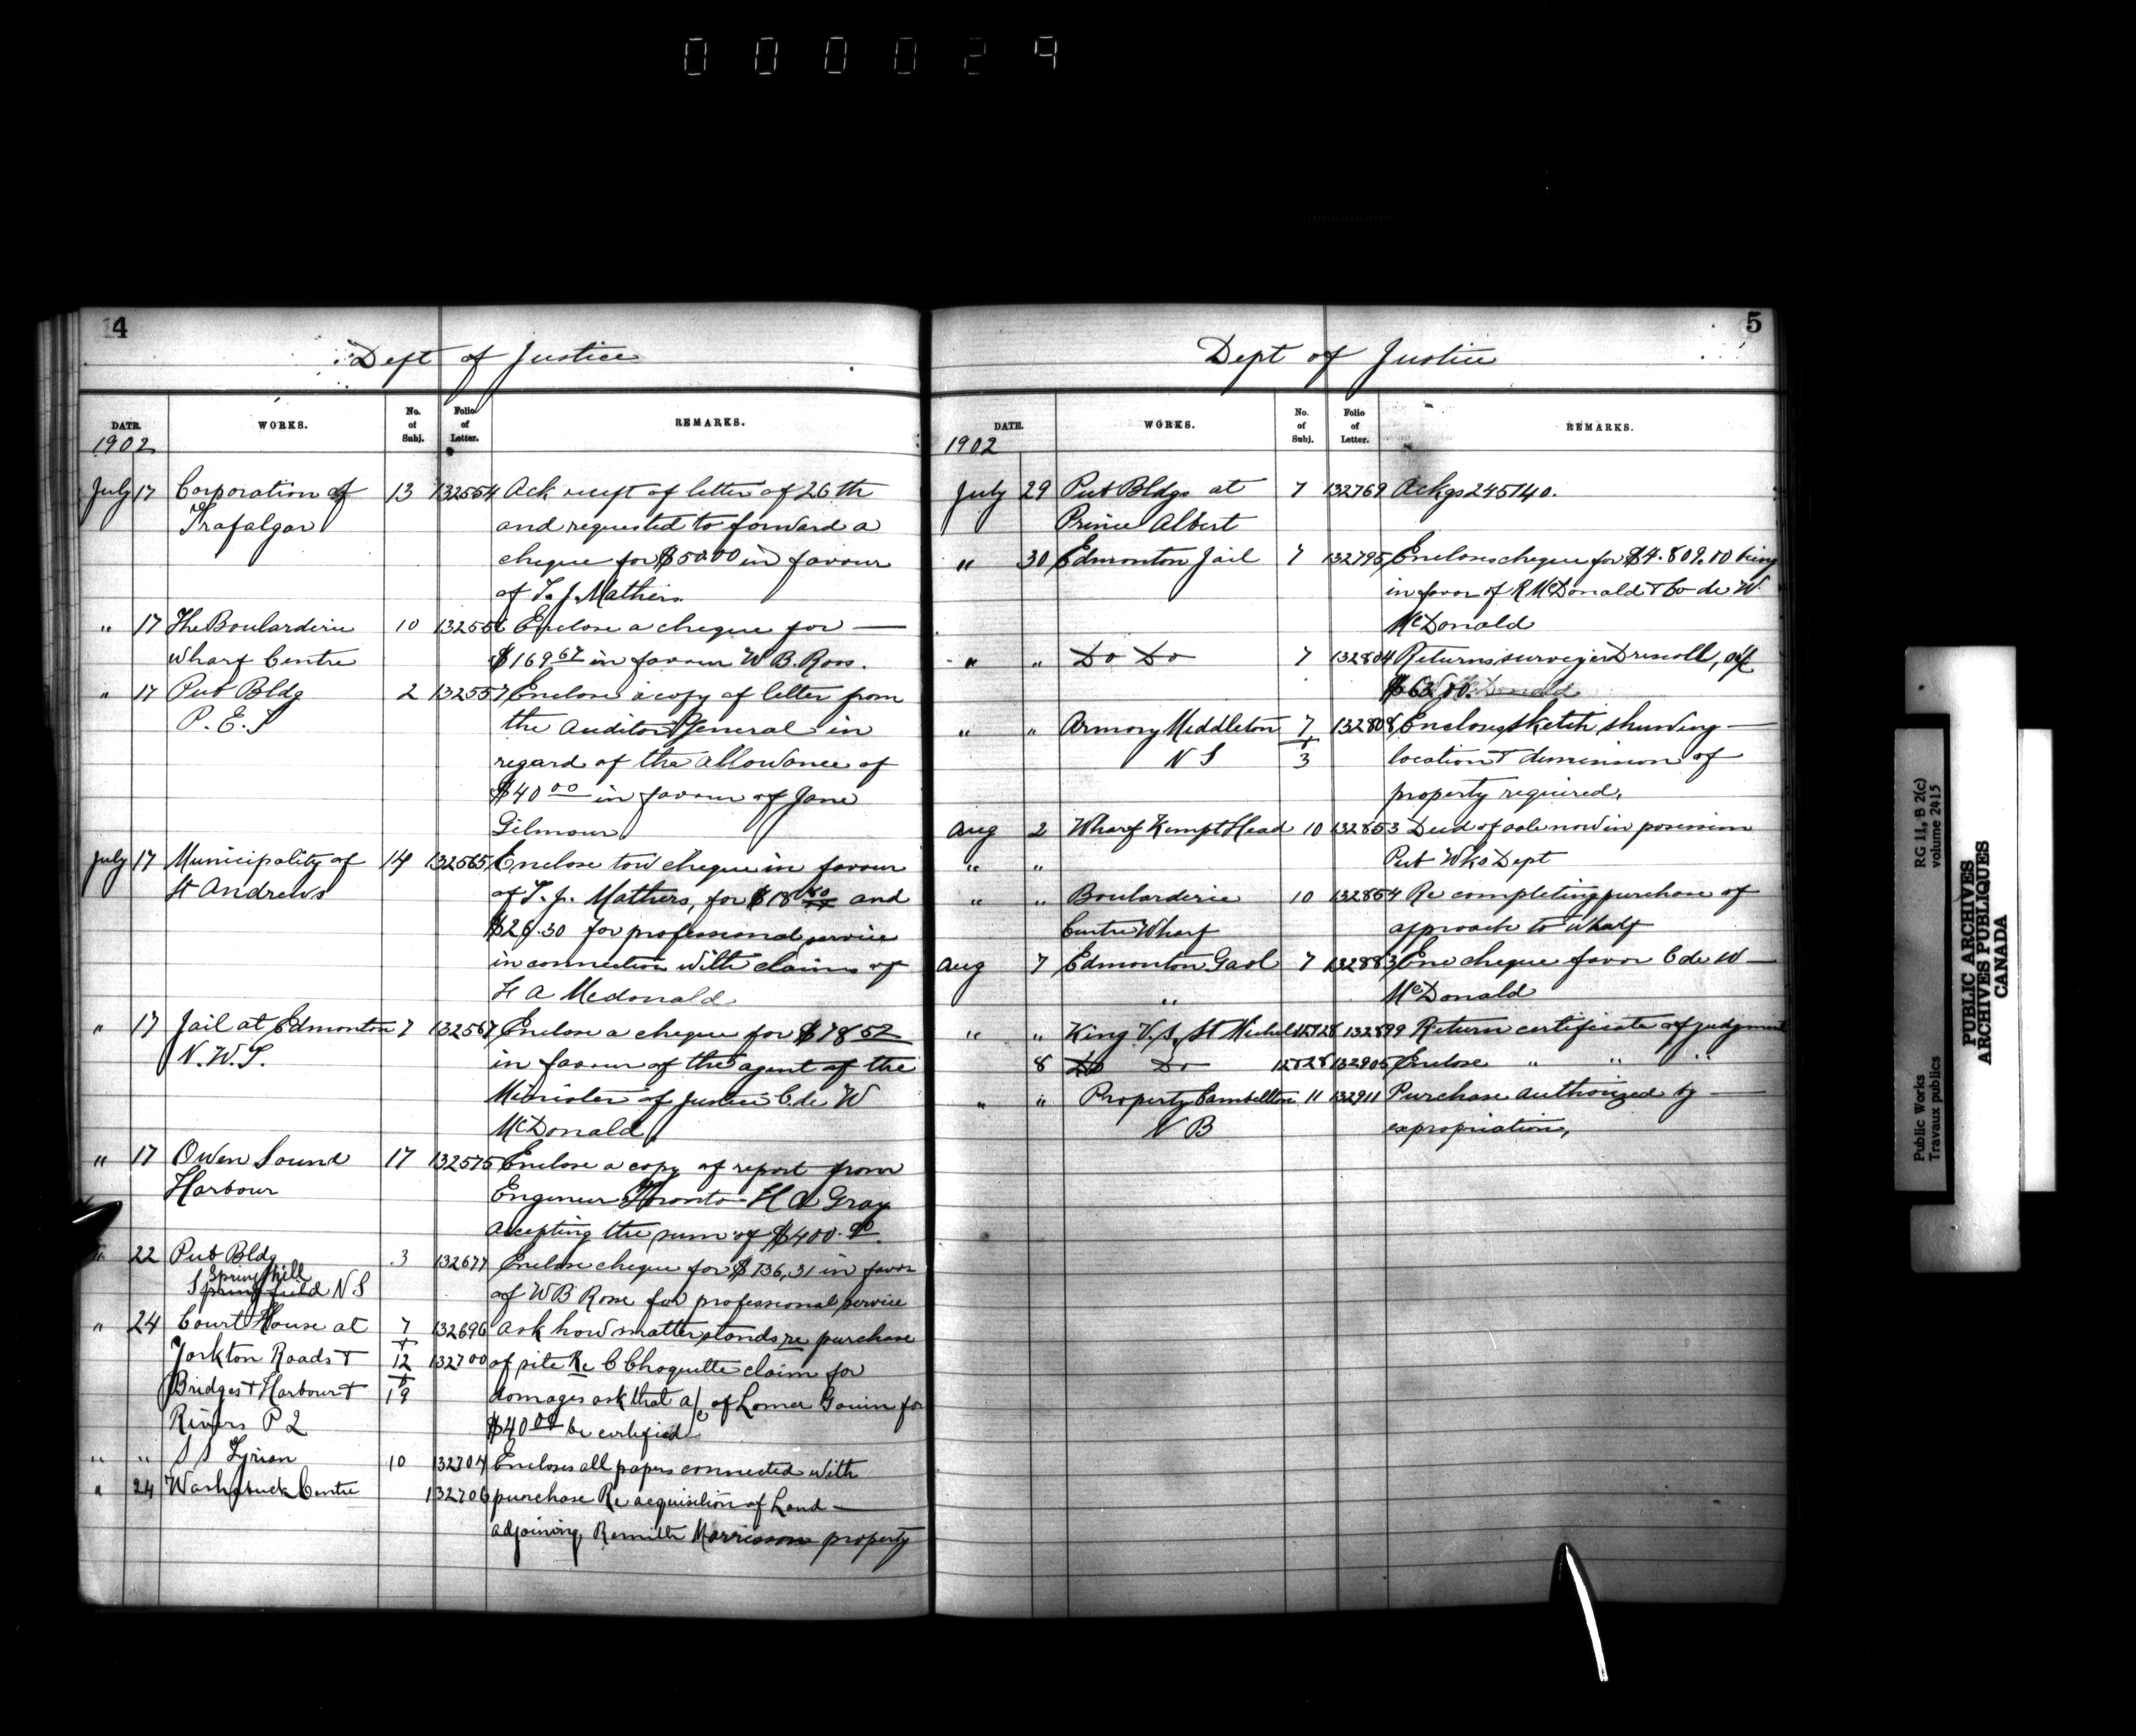 000029
4
Dept of Justice
DATE. WORKS. No. of Subj. Folio of Letter. REMARKS.
1902
July 17 Corporation of 13 132554 Ack receipt of letter of 26th
Trafalgar and requested to forward a
cheque for $50.00 in favour
of T. J. Mathers
" 17 The Boularderie 10 132556 Enclose a cheque for —
Wharf Centre $169 67 in favour W B. Ross.
" 17 Pub Bldg 2 132557 Enclose a copy of letter from
P. E. I the Auditor General in
regard of the allowance of
$40 00 in favour of Jane
Gilmour
July 17 Municipality of 14 132565 Enclose tow cheque in favour
St Andrews of T. J. Mathers, for $18 80 and
$26.30 for professional service
in connection with claims of
H A Mcdonald
" 17 Jail at Edmonton 7 132567 Enclose a cheque for $78 52
N. W. T. in favour of the agent of the
Minister of Justice C. de W
McDonald
" 17 Owen Sound 17 132575 Enclose a copy of report from
Harbour Engineer Toronto - H A Gray
Accepting the sum of $400.00
" 22 Pub Bldg 3 132677 Enclose cheque for $136,31 in favor
Springhill
Springfield N S of W B Rose for professional service
" 24 Court House at 7 132696 ask how matter stands re purchase
Yorkton Roads + + 12 132700 of site Re C Choquette claim for
Bridges + Harbour + + 19 damages ask that a/c of Lomer Gouin for
Rivers P Q $40 00 be certified
" " S S Tyrian 10 132704 Encloses all papers connected with
" 24 Washabuck Centre 132706 purchase Re acquisition of Land —
adjoining Morrison property
5
Dept of Justice
DATE. WORKS. No. of Subj. Folio of Letter. REMARKS.
1902
July 29 Pub Bldgs at 7 132769 Ackgs 245140.
Prince Albert
" 30 Edmonton Jail 7 132795 Encloses cheque for $4.809.10 being
in favor of R McDonald & Co de W.
McDonald
" " Do Do 7 132804 Returns surveyer Driscoll, a/c
$63.00.
" " Armory Middleton 7 132808 Encloses sketch showing —
N S + 3 location & dimension of
property required.
Aug 2 Wharf Kempt Head 10 132853 Deed of sale now in possession
" " Pub Wks Dept
" " Boularderie 10 132854 Re completing purchase of
Centre Wharf approach to Wharf
Aug 7 Edmonton Gaol 7 132883 Enc cheque favor C de W —
" McDonald
" " King V. S. St Michel 12828 132899 Return certificate of judgment
8 Do Do 12828 132905 Enclose " " "
" " Property Cambellton 11 132911 Purchase authorized by —
N B expropriation,
Public Works
Travaux publics
RG 11, B 2(c)
volume 2415
PUBLIC ARCHIVES
ARCHIVES PUBLIQUES
CANADA